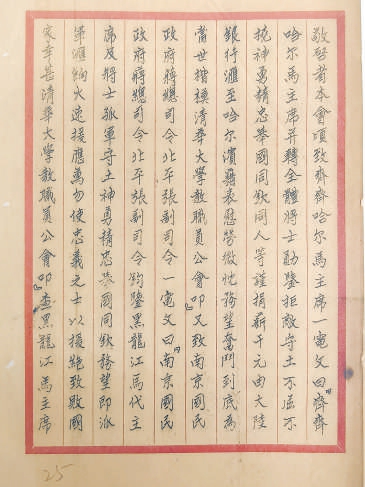 敬啓者本會頃致齊齊哈尔馬主席一電文曰『齊齊
哈尔馬主席并轉全體將士勛鑒拒敵守土不屈不
撓神勇精忠舉國同欽同人等謹捐薪千元由大陸
銀行滙至哈尔濱藉表慰勞微忱務望奮鬥到底為
當世楷模清華大學教職員公會叩』又致南京國民
政府蔣總司令北平張副司令一電文曰『南京國民
政府蔣總司令北平張副司令鈞鑒黑龍江馬代主
席及將士孤軍守土神勇精忠舉國同欽務望即派
飛滙餉火速援應萬勿使忠義之士以援絕致敗國
家幸甚清華大學教職員公會叩』查黑龍江馬主席
25